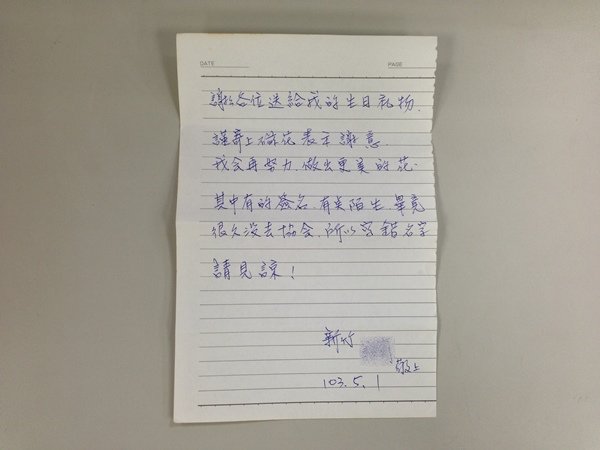 DATE PAGE
謝謝各位送給我的生日礼物.
謹寄上碗花表示謝意.
我会再努力,做出更美的花.
其中有的簽名,有点陌生,畢竟
很久没去协会,所以写錯名字
請見諒!
新竹
敬上
103.5.1